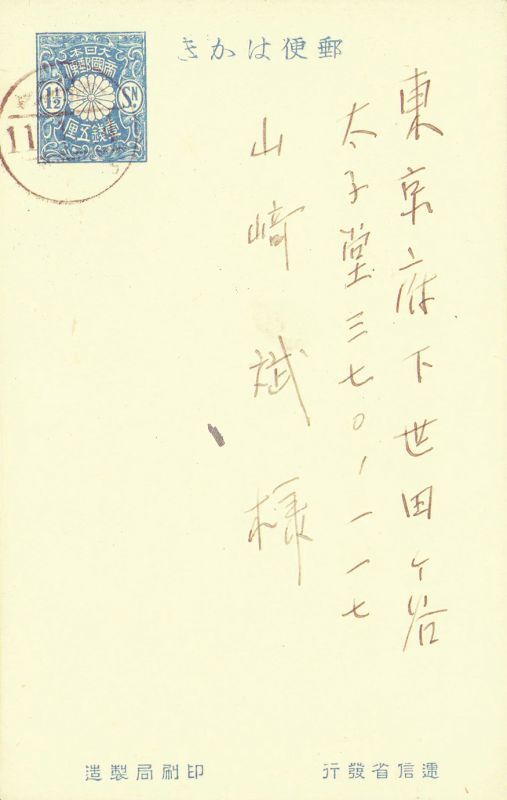 郵便はかき
大日本
帝國郵便
1½
SN
壹錢五厘
11
東京府下世田ヶ谷
太子堂三七〇、一一七
山崎斌様
逓信省發行
印刷局製造